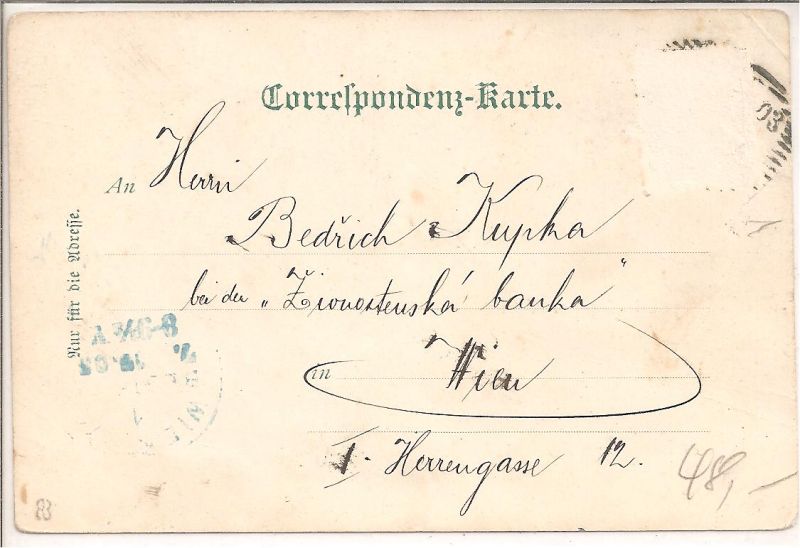 Correspondenz-Karte.
An Herrn
Bedřich Kupka
bei der „Živnostenská banka"
in Wien
I. Herrengasse 12.
Nur für die Adresse.
48,-
03
WIEN
83